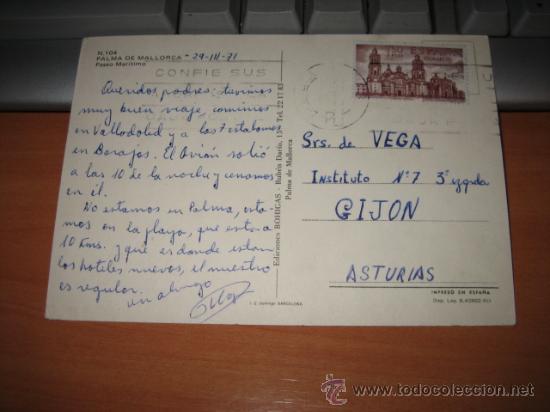 N.104
PALMA DE MALLORCA - 29-III-71
Paseo Marítimo
CONFIE SUS
Queridos padres: tuvimos
muy buen viaje, comimos
en Valladolid y a las 7 estabamos
en Barajas. El Avión salió
a las 10 de la noche y cenamos
en él.
No estamos en Palma, esta-
mos en la playa, que está a
10 Kms. y que es donde estan
los hoteles nuevos, el nuestro
es regular.
un abrazo
Ediciones BOHIGAS - Rubén Darío, 13 - Tel. 22 17 83
Palma de Mallorca
Srs. de VEGA
Instituto Nº 7 3º izqda
GIJON
ASTURIAS
IMPRESO EN ESPAÑA
I. G. Domingo BARCELONA
todocoleccion
www.todocoleccion.net